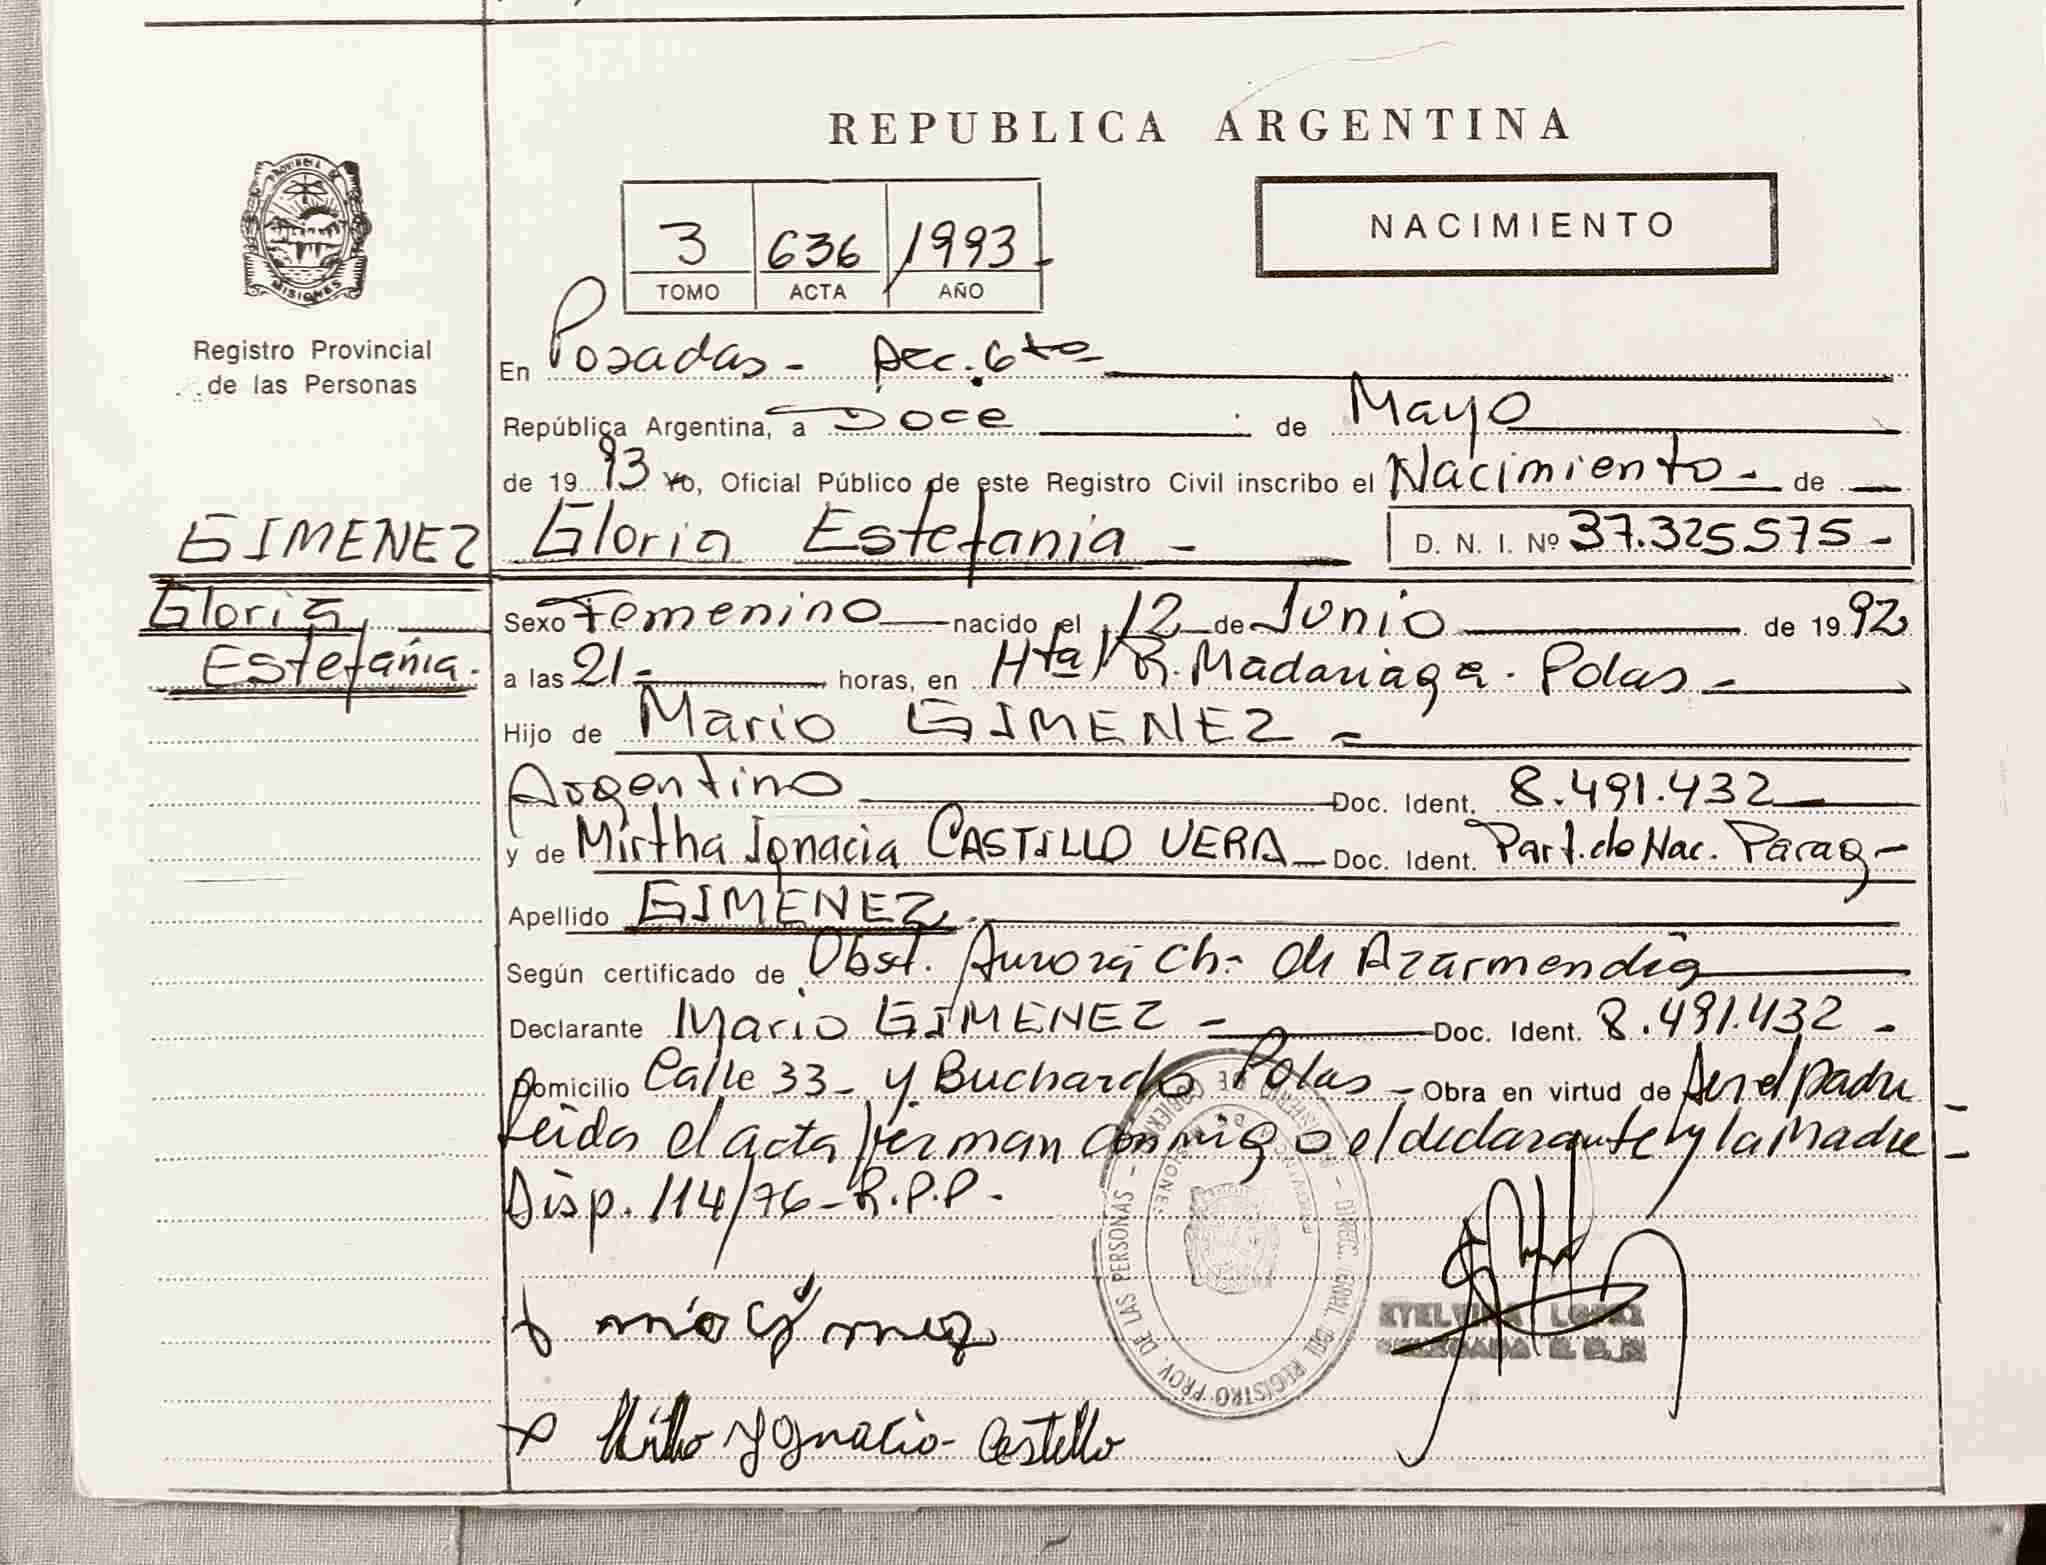 REPUBLICA ARGENTINA
PROVINCIA DE
MISIONES
Registro Provincial
de las Personas
NACIMIENTO
3 636 1993.
TOMO ACTA AÑO
En Posadas - Sec. 6to
República Argentina, a Doce de Mayo
de 1993 Yo, Oficial Público de este Registro Civil inscribo el Nacimiento - de
GIMENEZ
Gloria
Estefania.
Gloria Estefania - D. N. I. Nº 37.325.575 -
Sexo Femenino nacido el 12 de Junio de 1992
a las 21 - horas, en Htal R. Madariaga. Pdas -
Hijo de Mario GIMENEZ -
Argentino Doc. Ident. 8.491.432
y de Mirtha Ignacia CASTILLO VERA Doc. Ident. Part. de Nac. Parag -
Apellido GIMENEZ.
Según certificado de Obst. Aurora Ch. de Azarmendia
Declarante Mario GIMENEZ - Doc. Ident. 8.491.432 -
Domicilio Calle 33 - y Buchardo Pdas - Obra en virtud de Ser el padre
Leida el acta firman conmigo el declarante y la Madre -
Disp. 114/76 - R.P.P -
REGISTRO PROV. DE LAS PERSONAS
MISIONES
ETELVINA LOPEZ
DELEGADA
Ignacio Castello